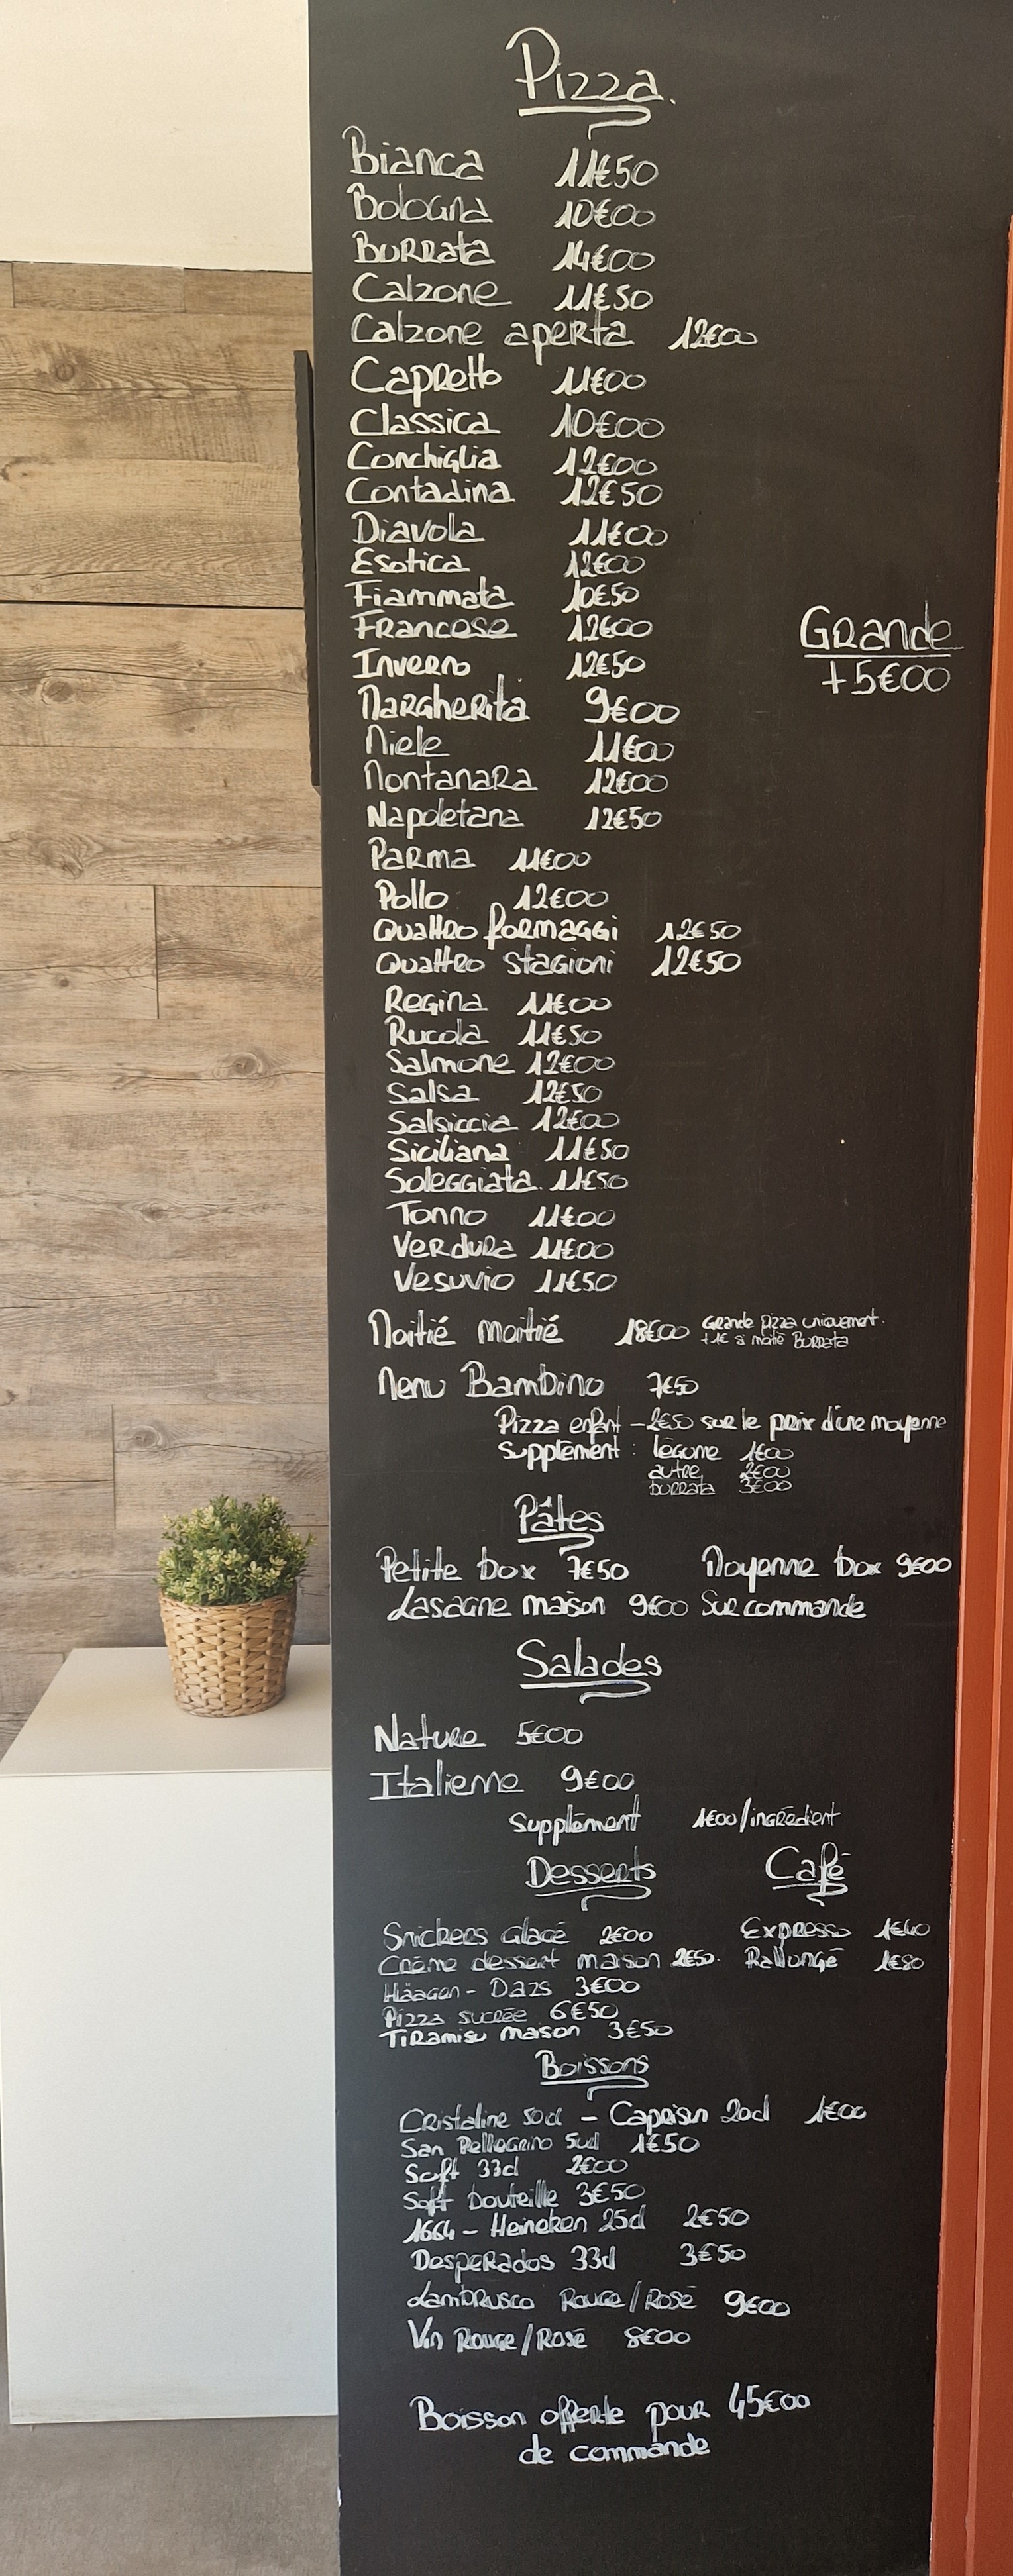 Pizza.
Bianca 11€50
Bologna 10€00
Burrata 14€00
Calzone 11€50
Calzone aperta 12€00
Capretto 11€00
Classica 10€00
Conchiglia 12€00
Contadina 12€50
Diavola 11€00
Esotica 12€00
Fiammata 10€50
Francese 12€00
Grande
+5€00
Inverno 12€50
Margherita 9€00
Miele 11€00
Montanara 12€00
Napoletana 12€50
Parma 11€00
Pollo 12€00
Quattro formaggi 12€50
Quattro stagioni 12€50
Regina 11€00
Rucola 11€50
Salmone 12€00
Salsa 12€50
Salsiccia 12€00
Siciliana 11€50
Soleggiata 11€50
Tonno 11€00
Verdura 11€00
Vesuvio 11€50
Moitié moitié 18€00 Grande pizza uniquement.
+1€ si moitié Burrata
Menu Bambino 7€50
Pizza enfant -2€50 sur le prix d'une moyenne
Supplément : légume 1€00
autre 2€00
burrata 3€00
Pâtes
Petite box 7€50 Moyenne box 9€00
Lasagne maison 9€00 Sur commande
Salades
Nature 5€00
Italienne 9€00
Supplément 1€00/ingrédient
Desserts Café
Snickers glacé 2€00 Expresso 1€40
Crème dessert maison 2€50. Rallongé 1€80
Häagen-Dazs 3€00
Pizza sucrée 6€50
Tiramisu maison 3€50
Boissons
Cristaline 50cl - Caprisun 20cl 1€00
San Pellegrino 50cl 1€50
Soft 33cl 2€00
Soft bouteille 3€50
1664 - Heineken 25cl 2€50
Desperados 33cl 3€50
Lambrusco Rouge/Rosé 9€00
Vin Rouge/Rosé 8€00
Boisson offerte pour 45€00
de commande